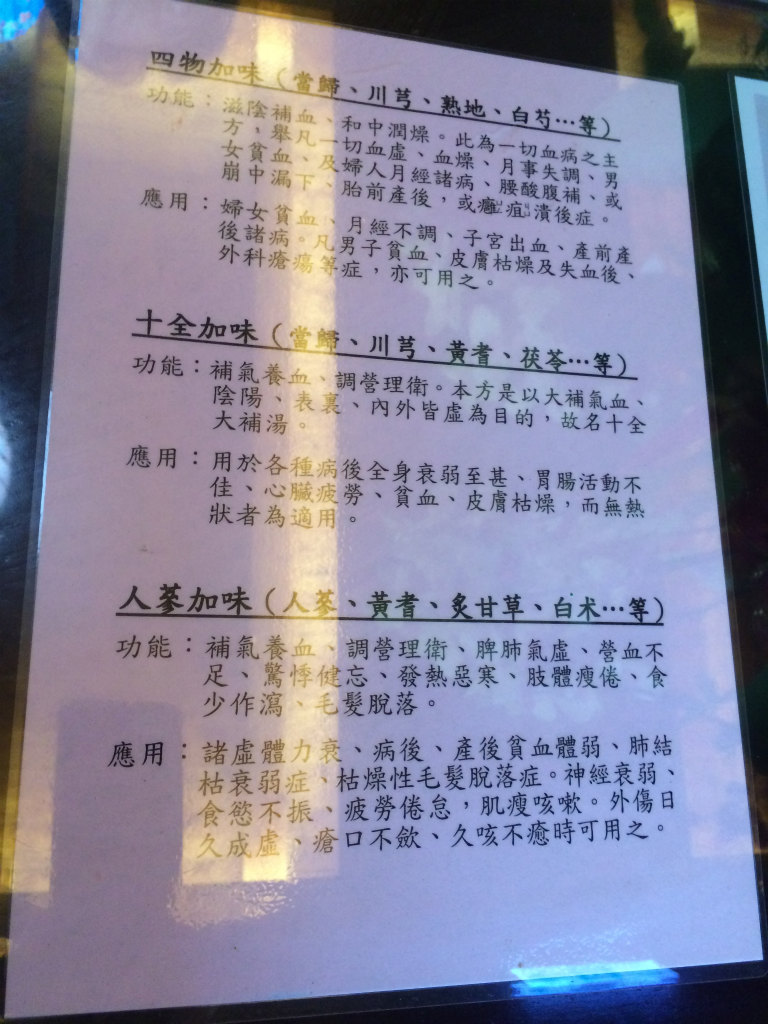 四物加味（當歸、川芎、熟地、白芍…等）
功能：滋陰補血、和中潤燥。此為一切血病之主
方，舉凡一切血虛、血燥、月事失調、男
女貧血、及婦人月經諸病、腰酸腹補、或
崩中漏下、胎前產後，或癰疽潰後症。
應用：婦女貧血、月經不調、子宮出血、產前產
後諸病。凡男子貧血、皮膚枯燥及失血後、
外科瘡瘍等症，亦可用之。
十全加味（當歸、川芎、黃耆、茯苓…等）
功能：補氣養血、調營理衛。本方是以大補氣血、
陰陽、表裏、內外皆虛為目的，故名十全
大補湯。
應用：用於各種病後全身衰弱至甚、胃腸活動不
佳、心臟疲勞、貧血、皮膚枯燥，而無熱
狀者為適用。
人蔘加味（人蔘、黃耆、炙甘草、白朮…等）
功能：補氣養血、調營理衛、脾肺氣虛、營血不
足、驚悸健忘、發熱惡寒、肢體瘦倦、食
少作瀉、毛髮脫落。
應用：諸虛體力衰、病後、產後貧血體弱、肺結
枯衰弱症、枯燥性毛髮脫落症。神經衰弱、
食慾不振、疲勞倦怠，肌瘦咳嗽。外傷日
久成虛、瘡口不歛、久咳不癒時可用之。